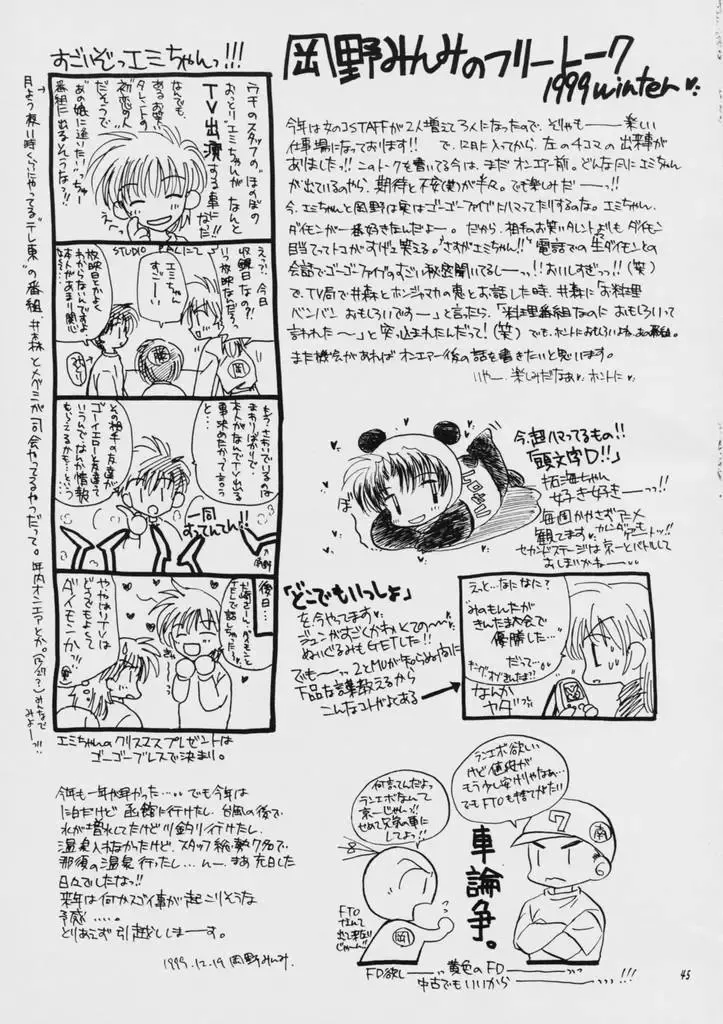 岡野みんみのフリートーク
1999 winter
今年は女のコSTAFFが2人増えて3人になったので、ぞゃもーー楽しい
仕事場になっております!! で、12月に入ってから、左の4コマの出来事が
ありました!! このトークを書いてる今は、まだオンエアー前。どんな風にエミちゃん
が出ているのやら、期待と不安で胸が半々。でも楽しみだーーっ!!
今、エミちゃんと岡野は実はゴーゴーファイブにハマってたりするのな。エミちゃん、
ダイモンが一番好きなんだよー。だから、相手のお笑いタレントよりもダイモン
目当てってトコがすげー笑える。さすがエミちゃん!! 電話での生ダイモンとの
会話でゴーゴーファイブのすごい秘密聞いてるしーーっ!! おいしすぎっ!! (笑)
で、TV局で井森とホンジャマカの恵とお話した時、井森に「お料理
バンバンおもしろいですー」と言ったら、「料理番組なのにおもしろいって
言われた〜」と突っ込まれたんだって! (笑) でも、ホントにおもしろいよね、あの番組。
また機会があればオンエアー後の話を書きたいと思います。
いやー、楽しみだなぁ ホントに
すごいぞっエミちゃんっ!!!
ウチのスタッフの"ほのぼの
おっとり"エミちゃんが なんと
TV出演
する事になった!!
なんでも、
あるお笑い
タレントの
初恋の人
だそうで
"あの娘に逢いたい"ちゅー
番組に出るそうなっ!!
えっ?今日
収録日なの?!
いつ放映なんだろ?
STUDIO
エミちゃん
すごーい
放映日とかよく
わからないんですよ
本人があまり関心
もう、さわいでいるのは
まわりばかりで、
本人がなんでTV出る
事決めたかって言う
と…
その相手の友達が
ゴーイエローと友達って
いうんでなんか情報
もらえるかも…という
一同
すってんてん!!
後日…
TELで話しちゃった
やっぱりTVは
どうでもよくて
ダイモンかっ!!
エミちゃんのクリスマスプレゼントは
ゴーゴーブレスで決まり。
月よう夜11時くらいにやってる"テレ東"の番組、井森とメグミが司会やってるやつだって。年内オンエアとか。みんなで
みよーっ!!
今、超ハマってるもの!!
「頭文字D!!」
拓海ちゃん
好き好きーーっ!!
毎週かかさずたメ
観てます カレンダーもゲーットッ!!
セカンドステージは京一とバトルして
おしまいかねーー
「どこでもいっしょ」
を今やってます
ジュンがすごくかわいくての〜〜
ぬいぐるみもGETした!!
でもーー 2とMUが知らぬ内に
下品な言葉教えるから
こんなコトがよくある
えっと…なになに?
みのもんたが
きんたま大会で
優勝した…
だって…
なんか
ヤダ
今年も一年が早かった…‥でも今年は
1泊だけど函館に行けたし、台風の後で
水が増水してたけど川釣り行けたし、
温泉入れなかったけど、スタッフ総勢7名で、
那須の温泉行ったし…んー、まあ充実した
日々でしたなっ!!
来年は何かスゴイ事が起こりそうな
予感……。
とりあえず引越ししまーす。
1999.12.19 岡野みんみ.
ランエボ欲しい
けど値段が
もう少し安けりゃなぁ…
でもFTOも捨てがたい
何言ってんだよっ
ランエボなんて
京一じゃんっ!!
せめて兄気の車に
してよっ!!
車論争。
岡
南
FD欲しーー 黄色のFDーーっ
中古でもいいからーー!!!
45